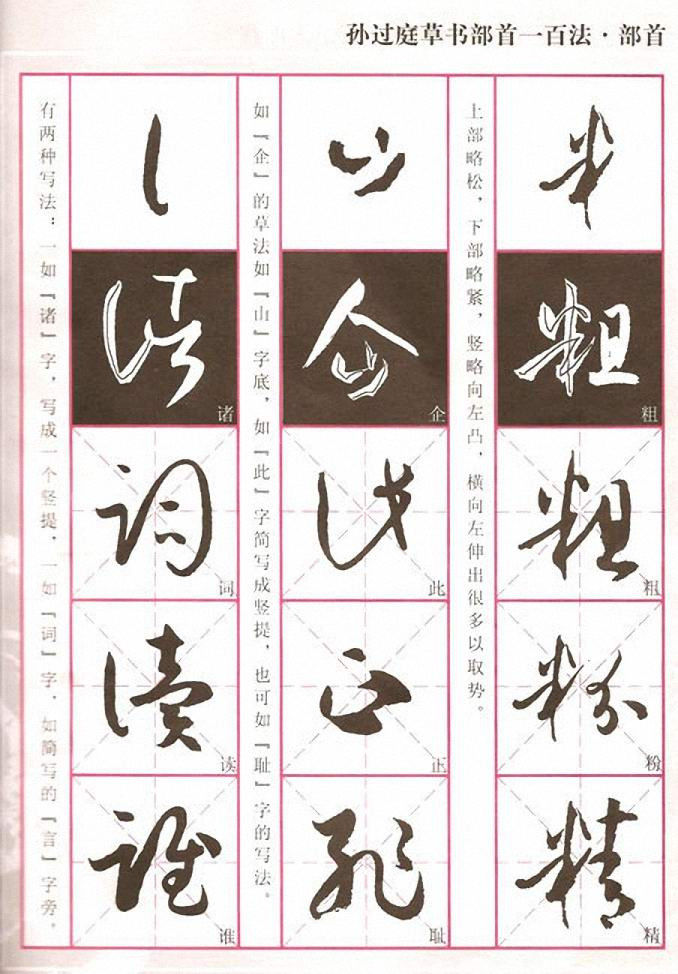 孙过庭草书部首一百法·部首
上部略松，下部略紧，竖略向左凸，横向左伸出很多以取势。
粗
粗
粉
精
如『企』的草法如『山』字底，如『此』字简写成竖提，也可如『耻』字的写法。
企
此
正
耻
有两种写法：一如『诸』字，写成一个竖提，一如『词』字，如简写的『言』字旁。
诸
词
读
谁